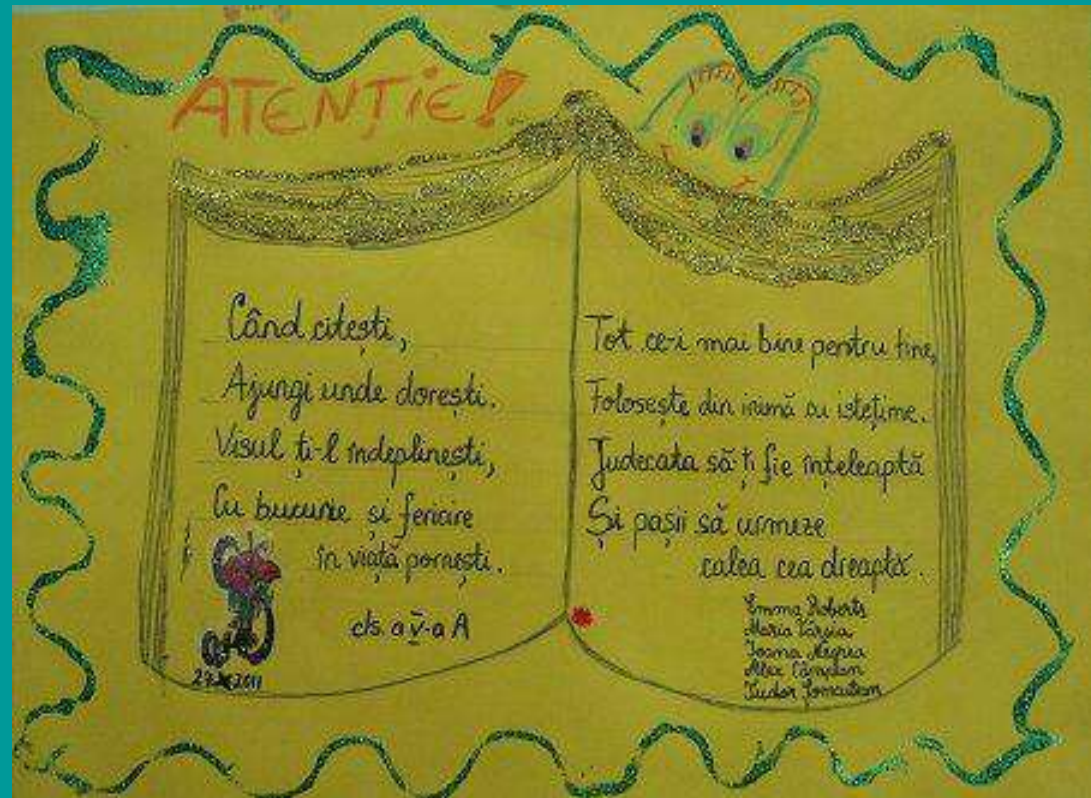 ATENȚIE!
Când citești,
Ajungi unde dorești.
Visul ți-l îndeplinești,
Cu bucurie și fericire
în viață pornești.
cls. a V-a A
Tot ce-i mai bine pentru tine,
Folosește din inimă cu istețime.
Judecata să-ți fie înțeleaptă
Și pașii să urmeze
calea cea dreaptă.
Emma Roberts
Maria
Ioana Negrea
Alex Câmpean
Tudor